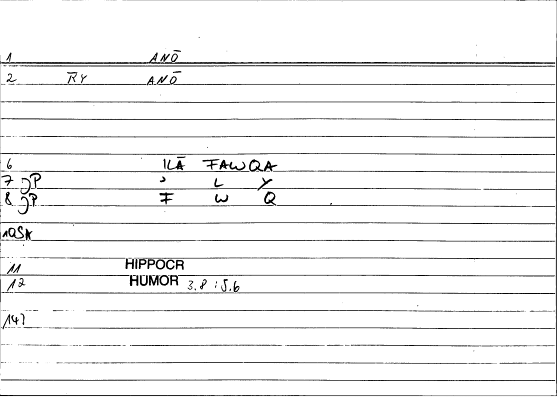 1 ANŌ
2 R̄Y ANŌ
6 ILĀ FAWQA
7 P ʾ L Y
8 P F W Q
10SA
11 HIPPOCR
12 HUMOR 3.8 : 5.6